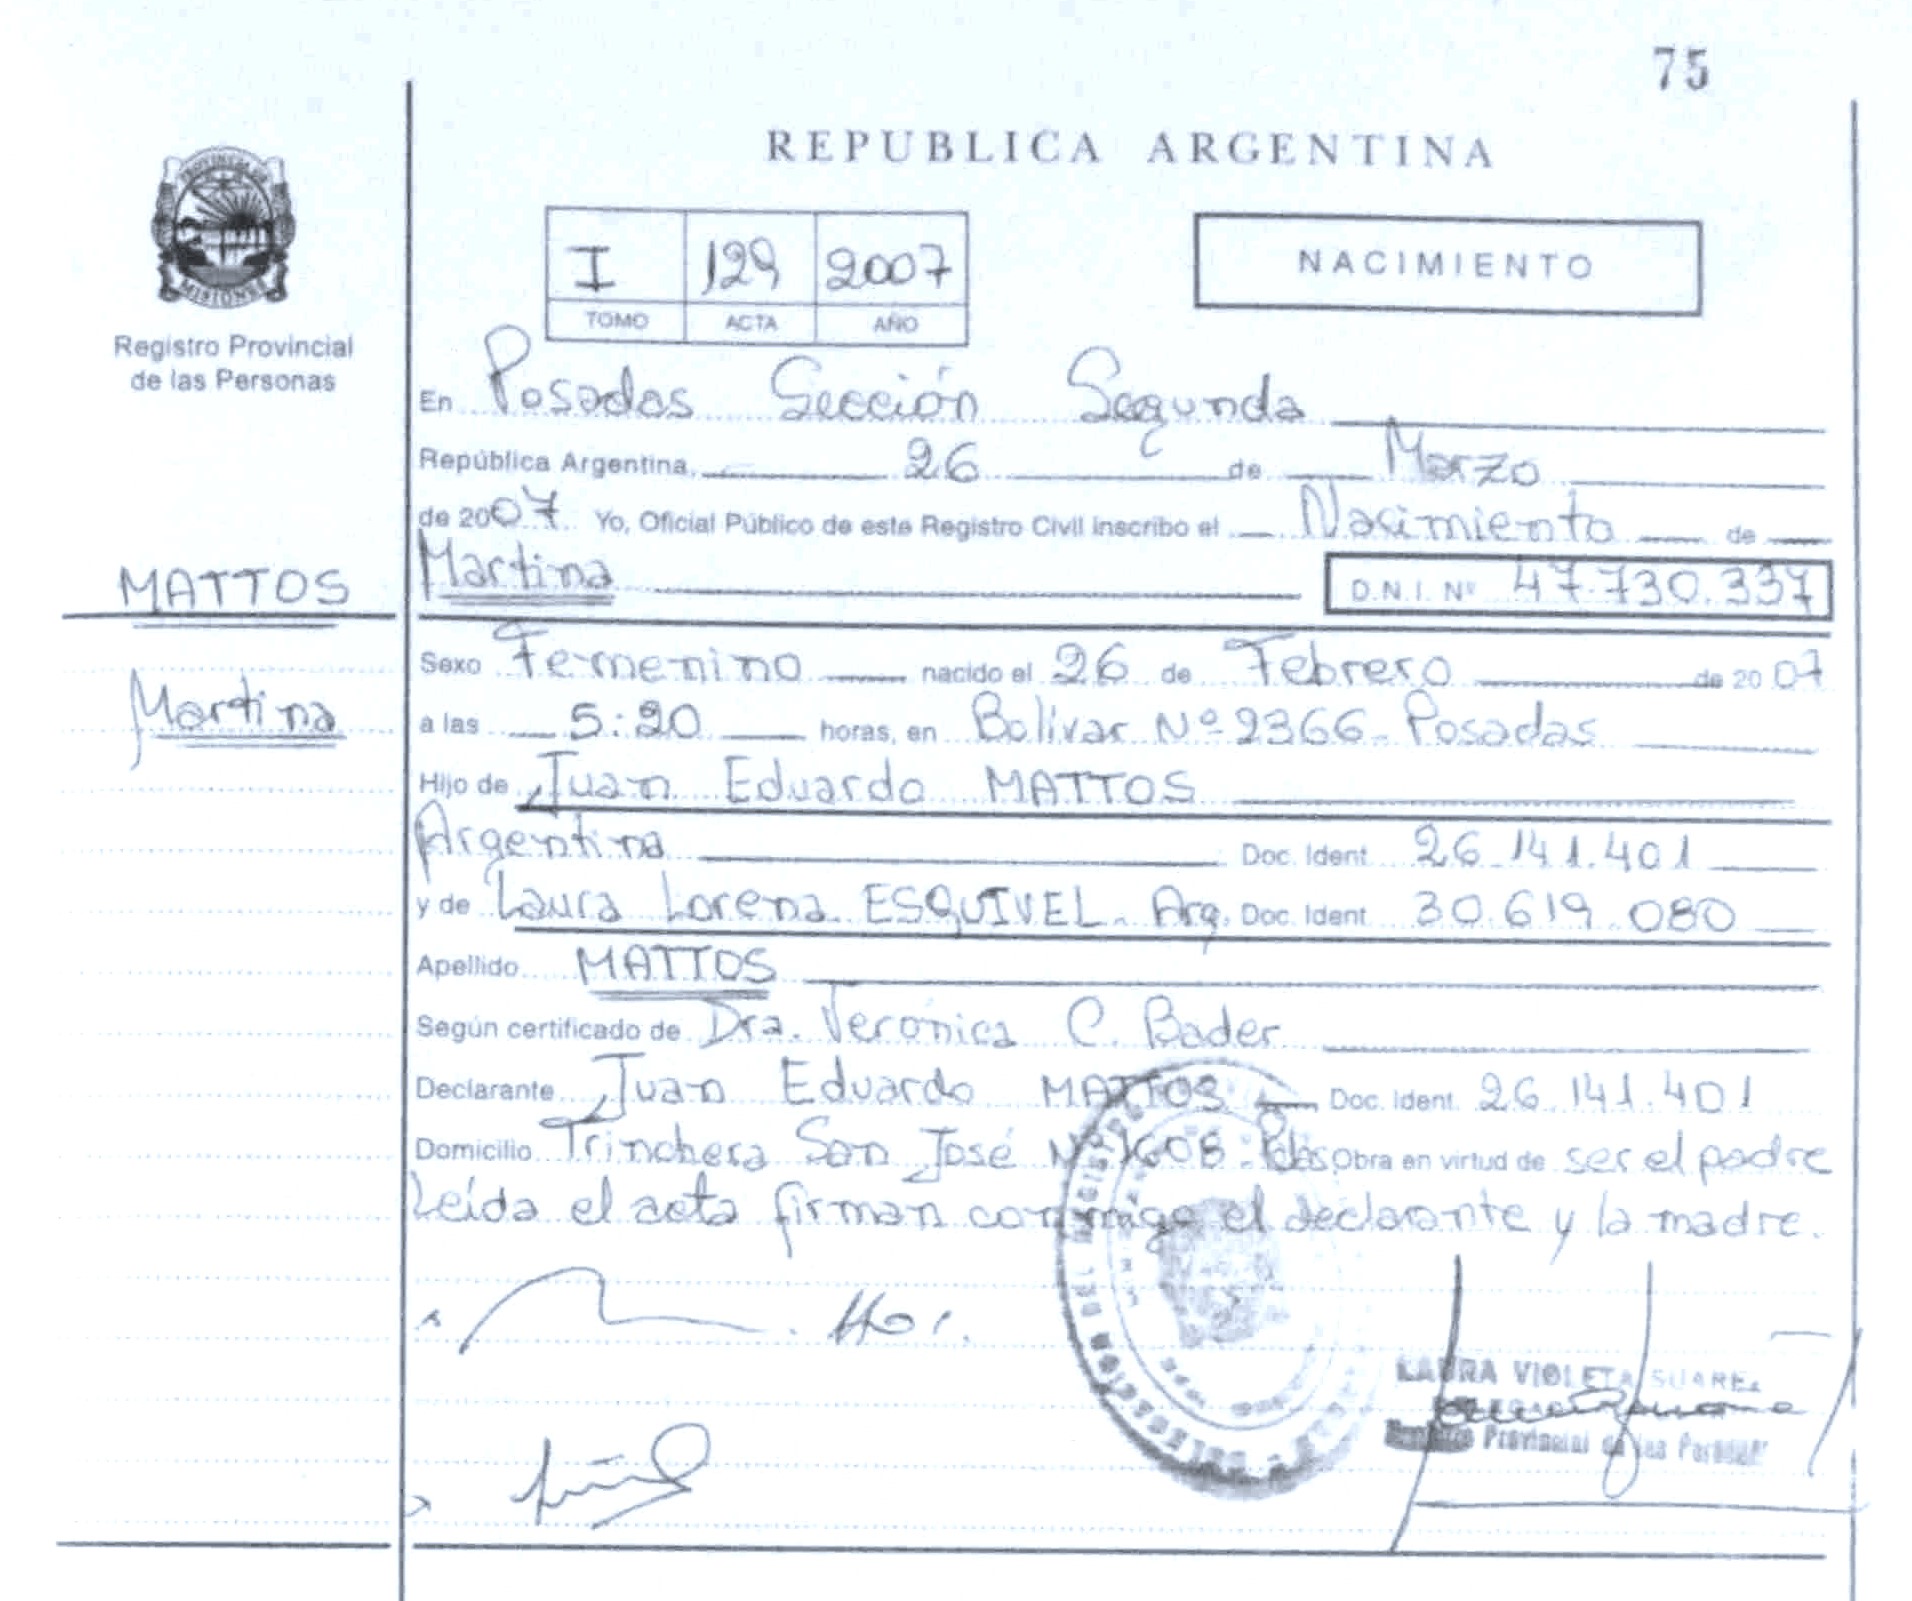 75
REPUBLICA ARGENTINA
PROVINCIA DE
MISIONES
Registro Provincial
de las Personas
I 129 2007
TOMO ACTA AÑO
NACIMIENTO
En Posadas Sección Segunda
República Argentina, 26 de Marzo
de 2007 Yo, Oficial Público de este Registro Civil inscribo el Nacimiento de
MATTOS
Martina
Martina D.N.I. Nº 47.730.337
Sexo Femenino nacido el 26 de Febrero de 2007
a las 5:20 horas, en Bolívar Nº 2366 - Posadas
Hijo de Juan Eduardo MATTOS
Argentina Doc. Ident. 26.141.401
y de Laura Lorena ESQUIVEL - Arg. Doc. Ident. 30.619.080
Apellido MATTOS
Según certificado de Dra. Verónica C. Bader
Declarante Juan Eduardo MATTOS Doc. Ident. 26.141.401
Domicilio Trinchera San José Nº 1608 - Pdas Obra en virtud de ser el padre
Leída el acta firman conmigo el declarante y la madre.
LAURA VIOLETA SUAREZ
Provincial de las